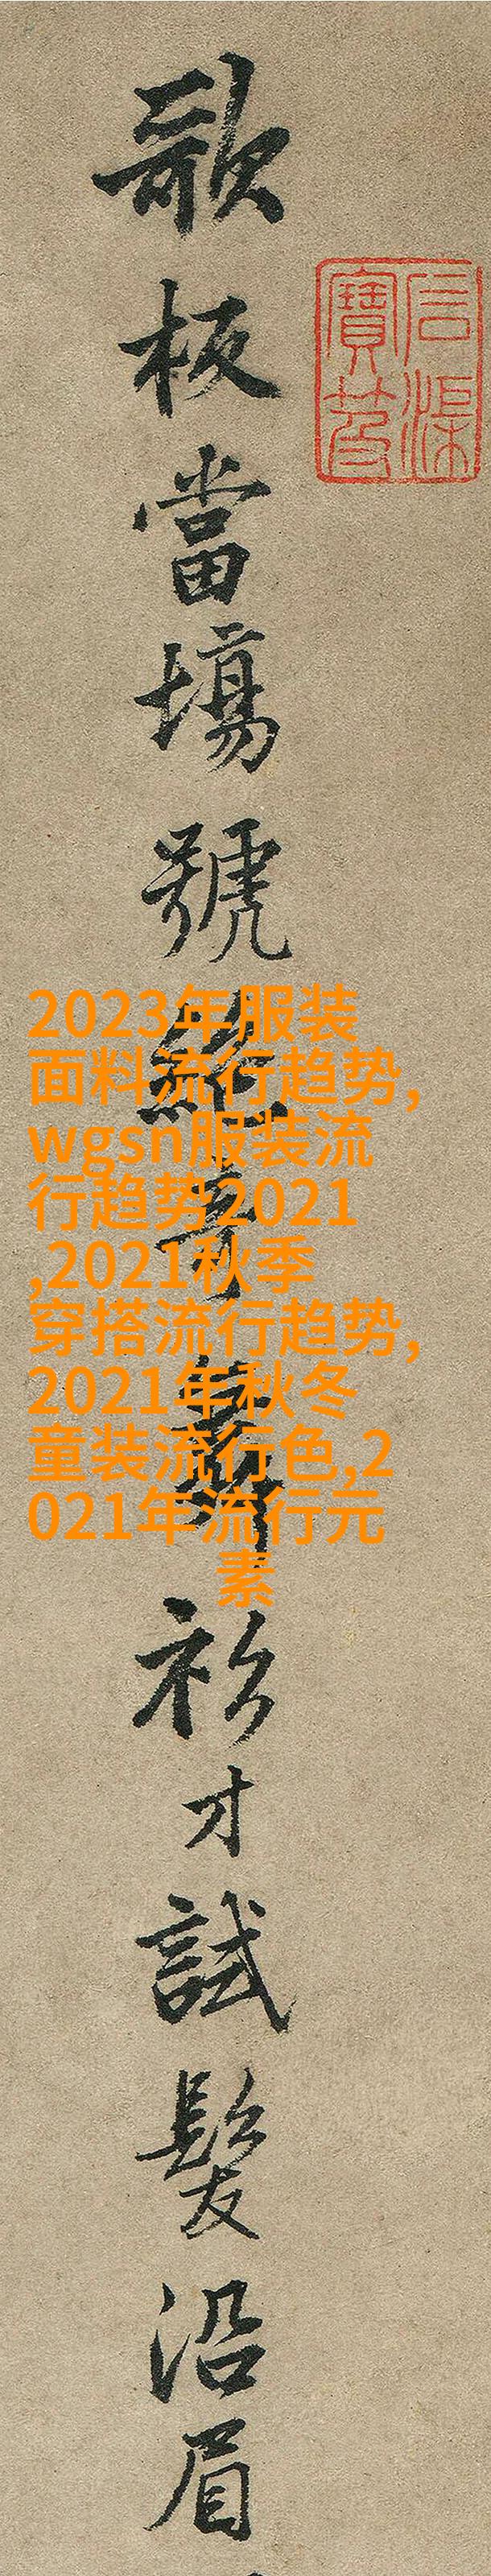 歌板當塲號絶奇舞衫才試髮沿眉
石渠
寶笈
2023年服装
面料流行趋势,
wgsn服装流
行趋势2021
,2021秋季
穿搭流行趋势,
2021年秋冬
童装流行色,2
021年流行元
素